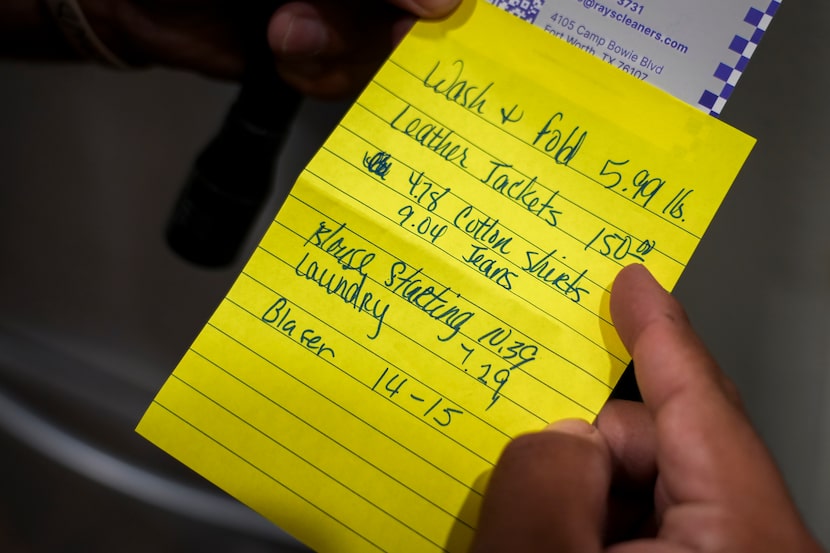 3731
@rayscleaners.com
4105 Camp Bowie Blvd
Fort Worth, TX 76107
Wash & fold 5.99 lb.
Leather Jackets 150.00
4.78 Cotton Shirts
9.04 Jeans
Blouse Starting 10.39
Laundry 7.29
Blafer 14-15